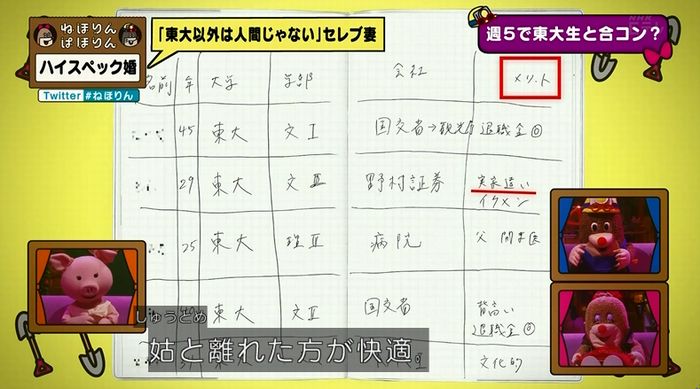 ねほりん
ぱほりん
ハイスペック婚
Twitter #ねほりん
「東大以外は人間じゃない」セレブ妻
NHK
週5で東大生と合コン？
名前 年 大学 学部 会社 メリット
45 東大 文I 国交省→観光庁 退職金◎
29 東大 文II 野村証券 実家遠い
イケメン
25 東大 理III 病院 父 開業医
東大 文II 国交省 背高い
退職金◎
文化的
しゅうとめ
姑と離れた方が快適